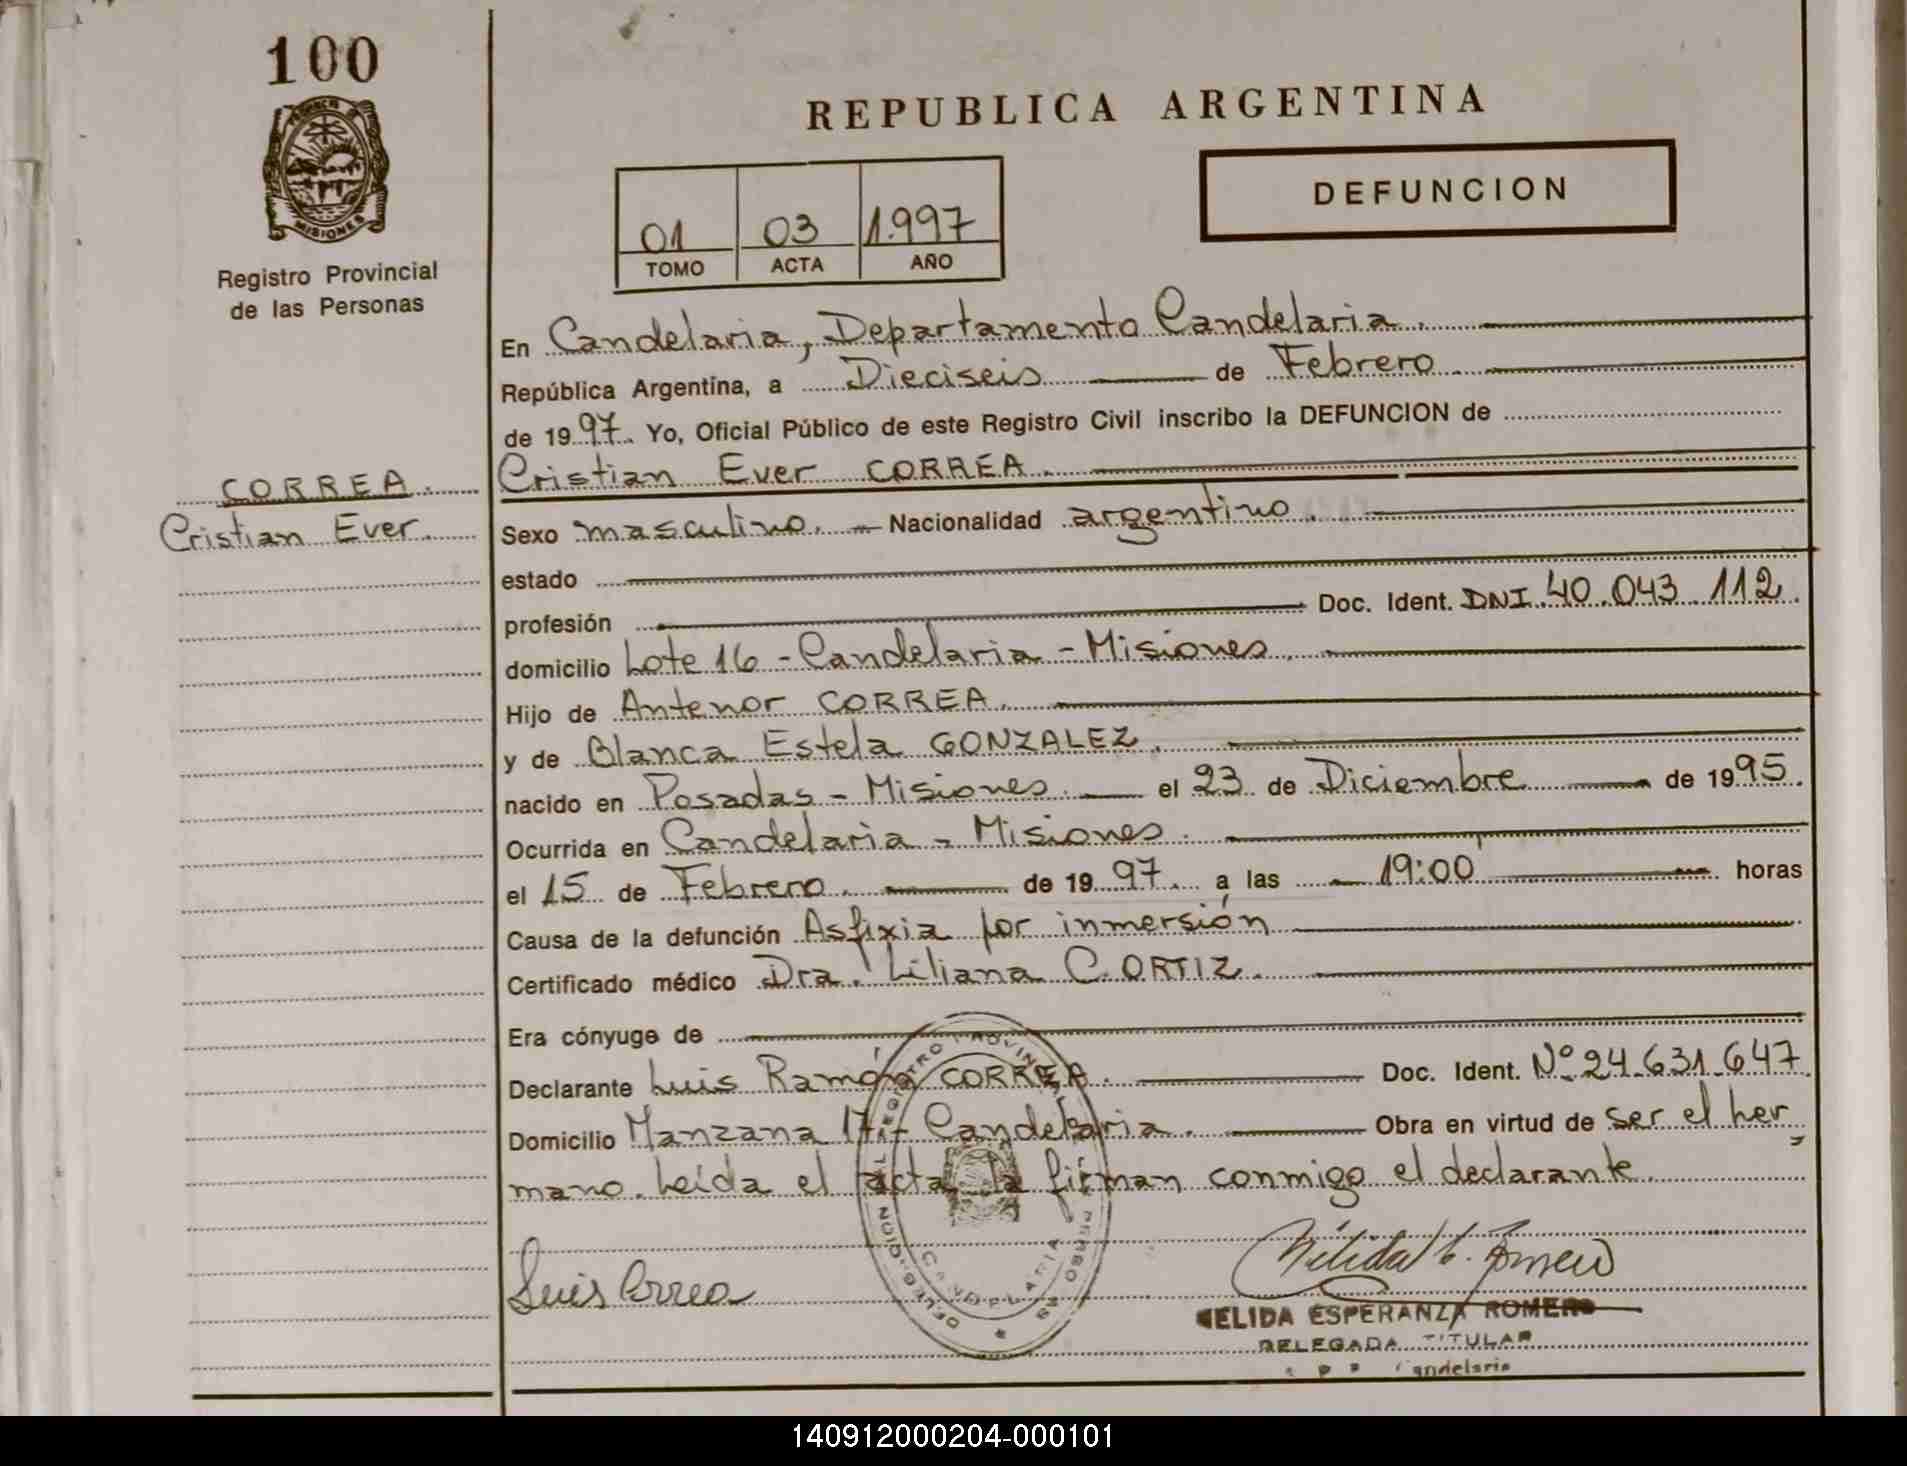 100
PROVINCIA DE
MISIONES
Registro Provincial
de las Personas
REPUBLICA ARGENTINA
DEFUNCION
01 03 1.997
TOMO ACTA AÑO
En Candelaria, Departamento Candelaria.
República Argentina, a Dieciseis de Febrero
de 1997. Yo, Oficial Público de este Registro Civil inscribo la DEFUNCION de
CORREA.
Cristian Ever.
Cristian Ever CORREA.
Sexo masculino. Nacionalidad argentino.
estado
profesión Doc. Ident. DNI.40.043.112.
domicilio Lote 16 - Candelaria - Misiones.
Hijo de Antenor CORREA.
y de Blanca Estela GONZALEZ.
nacido en Posadas - Misiones. el 23 de Diciembre de 1995.
Ocurrida en Candelaria - Misiones.
el 15 de Febrero. de 1997. a las 19:00 horas
Causa de la defunción Asfixia por inmersión
Certificado médico Dra. Liliana C. ORTIZ.
Era cónyuge de
Declarante Luis Ramón CORREA. Doc. Ident. Nº 24.631.647
Domicilio Manzana 17 - Candelaria. Obra en virtud de ser el her-
mano. Leída el acta la firman conmigo el declarante.
REGISTRO PROVINCIAL
CANDELARIA
Luis Correa
NELIDA ESPERANZA ROMERO
DELEGADA TITULAR
Candelaria
140912000204-000101